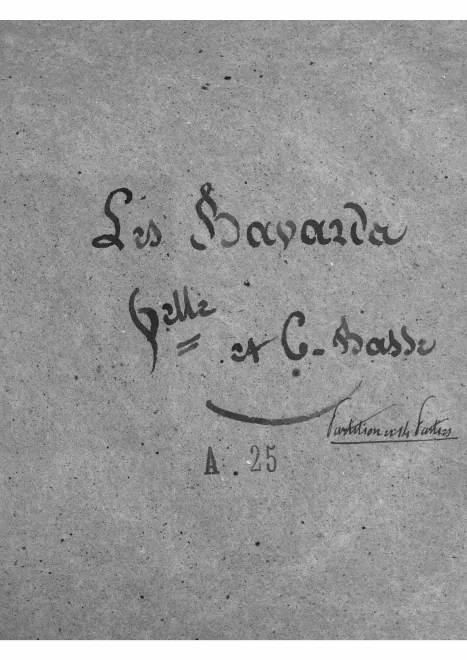 Les Bavards
Velle
et C. Basse
Partition et 14 Parties
A. 25